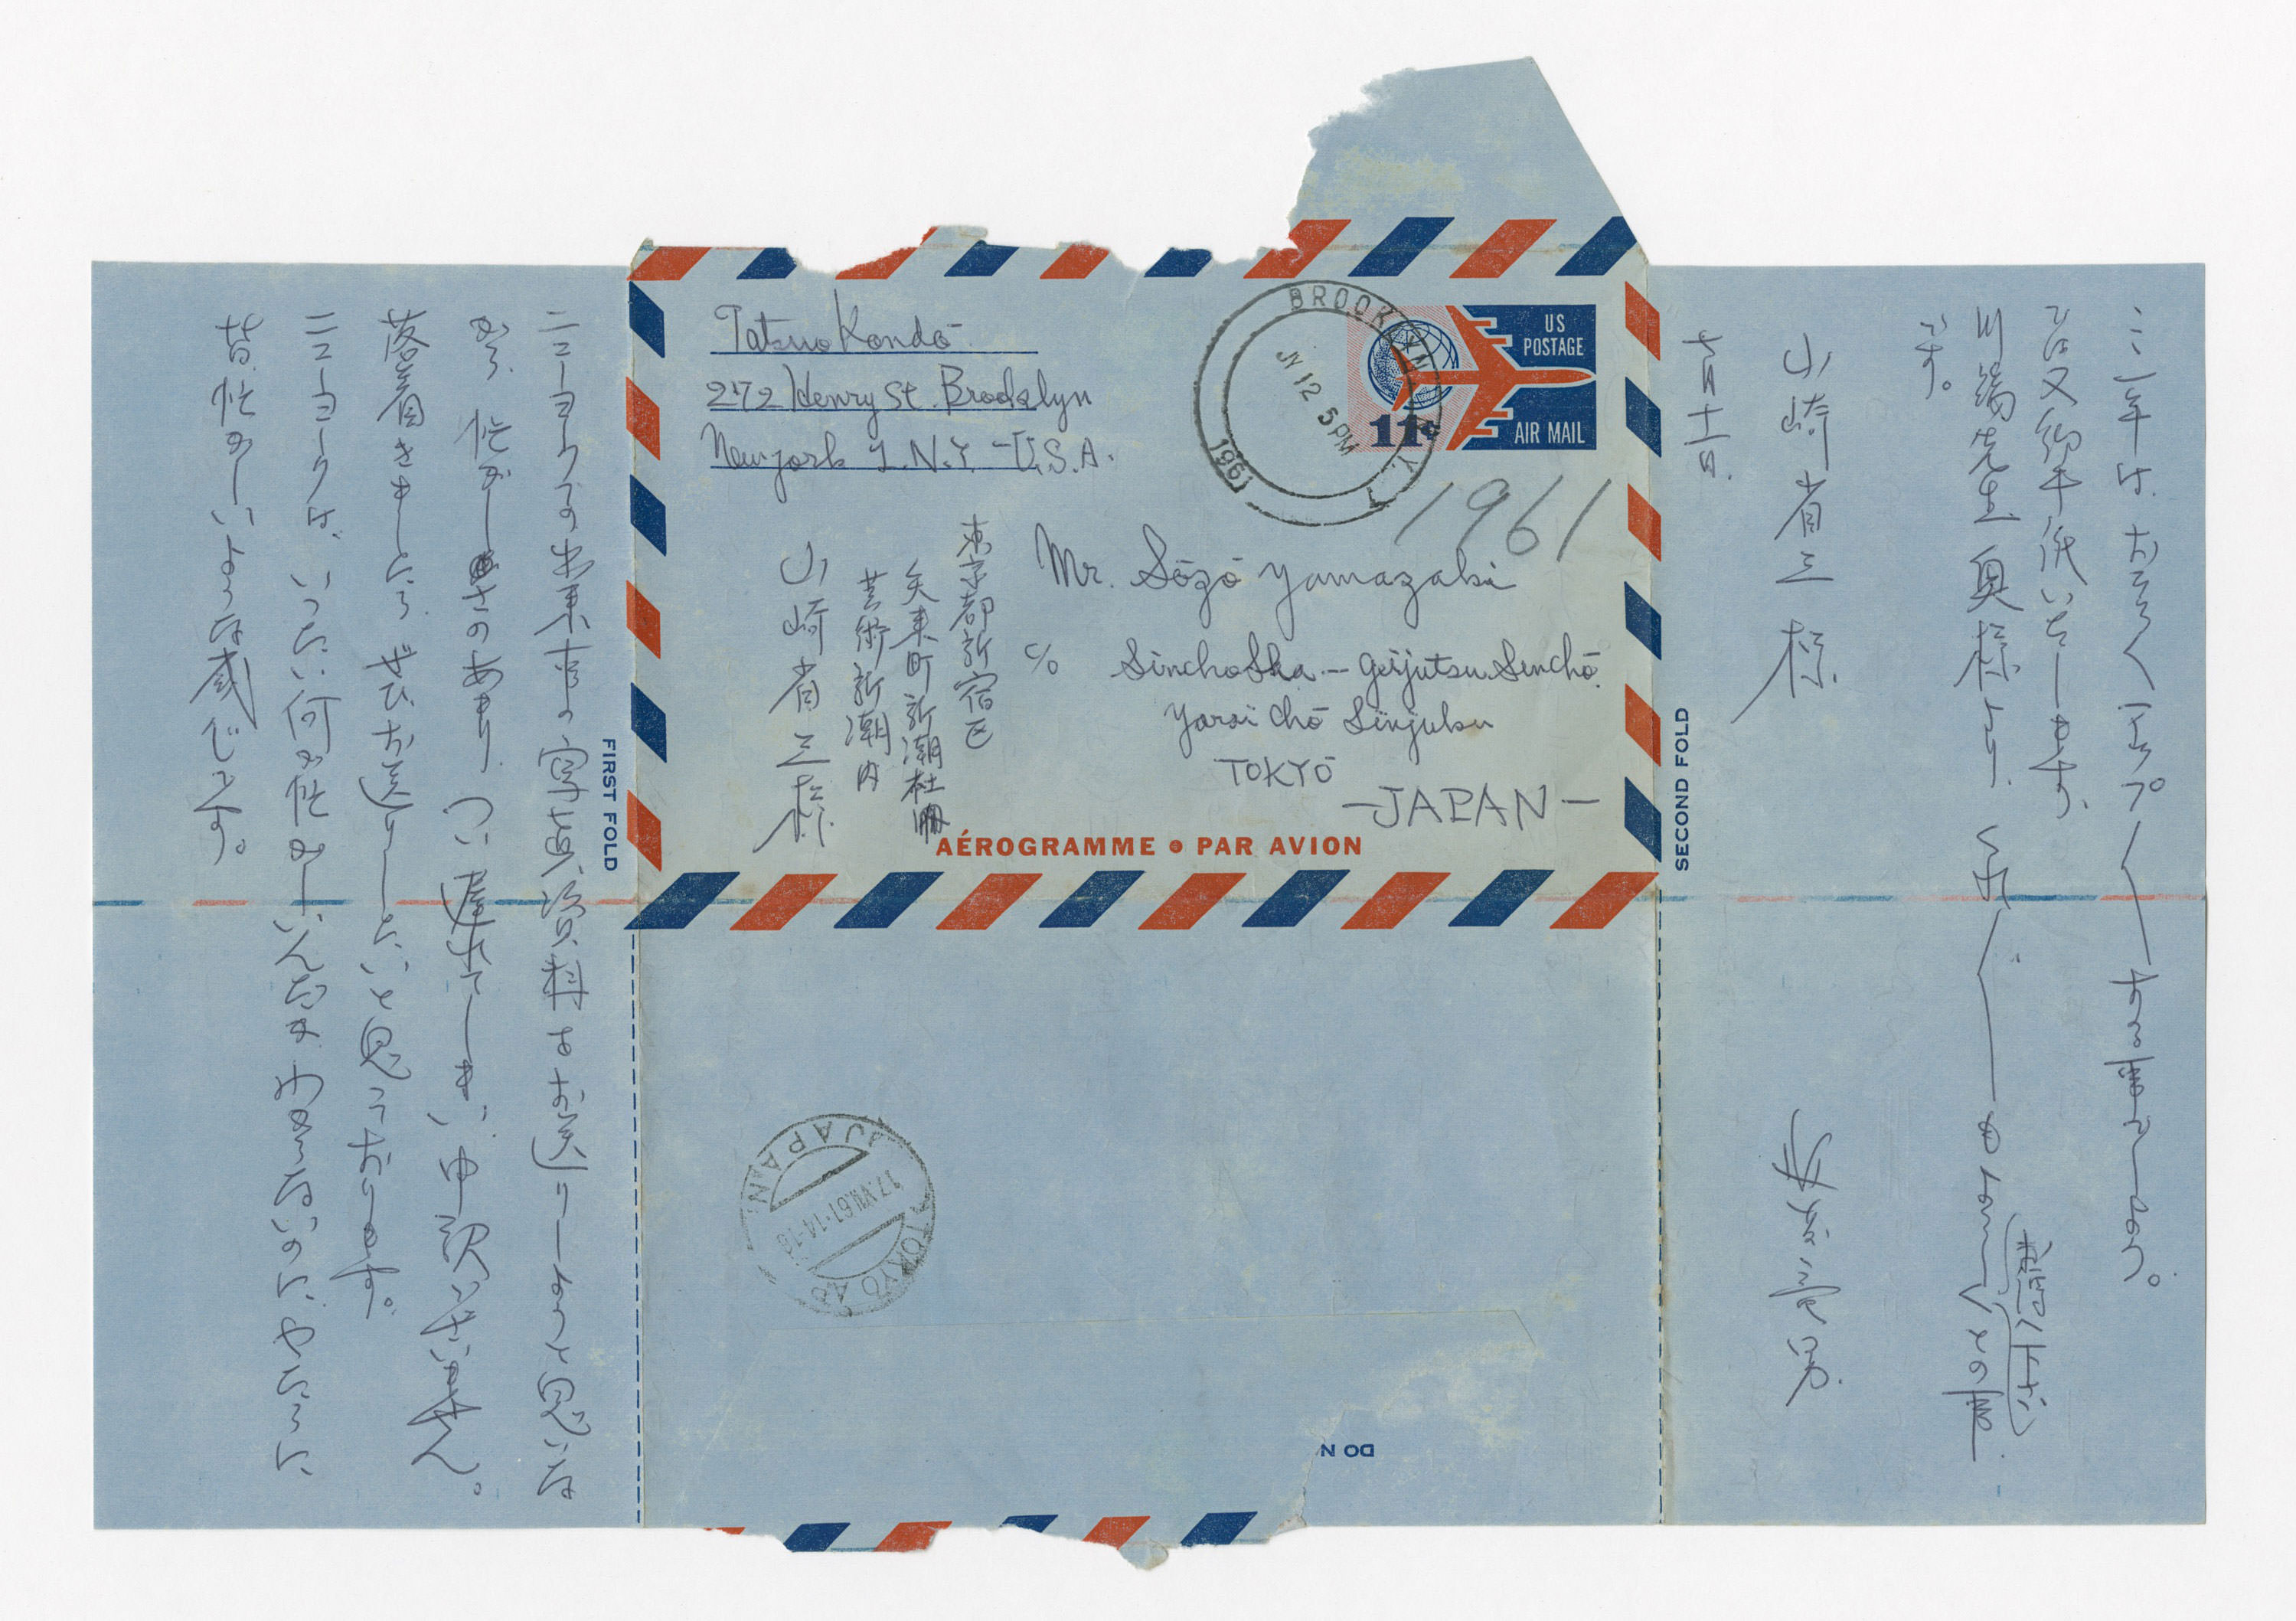 Tatsuo Kondō
272 Henry St. Brooklyn
New York 1. N.Y. U.S.A.
BROOKLYN, N.Y.
JY 12
5 PM
1961
US
POSTAGE
11¢
AIR MAIL
1961
Mr. Sōzō Yamazaki
c/o Sinchosha - Geijutsu Sinchō
Yarai Chō Sinjuku
TOKYŌ
-JAPAN-
東京都新宿区
矢来町新潮社
芸術新潮内
山崎省三様
AÉROGRAMME • PAR AVION
FIRST FOLD
SECOND FOLD
TOKYO
JAPAN
17.VII.61.14-16
DO N
二三年は、おそらく
では又御手紙いたします。
川端先生奥様より、よろしく との事
です。
七月十二日.
山崎省三様
ニューヨークでの出来事の写真、資料はお送りしようと思いな
がら、忙がしさのあまり、つい遅れてしまい、申訳いたしません。
落着きましたら、ぜひお送りしたいと思っております。
ニューヨークは、いったい何が忙がしいんだかわからないのに、やたらに
皆忙がしいような感じです。